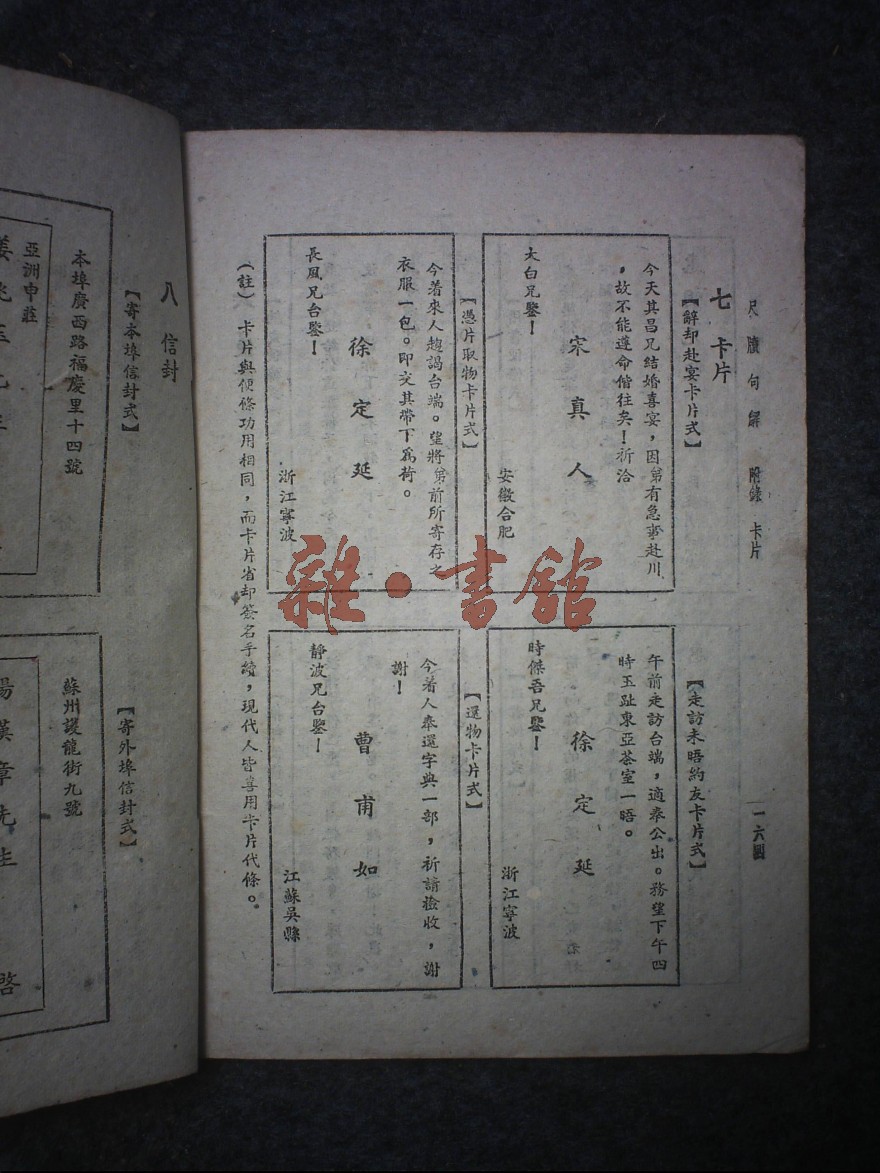 尺牘句解 附錄 卡片 一六四
七 卡片
【辭却赴宴卡片式】
今天其昌兄結婚喜宴，因弟有急事赴川
，故不能遵命偕往矣！祈洽
宋真人
大白兄鑒！
安徽合肥
【走訪未晤約友卡片式】
午前走訪台端，適奉公出。務望下午四
時玉趾東亞茶室一晤。
徐定延
時傑吾兄鑒！
浙江寧波
【憑片取物卡片式】
今着來人趨謁台端。望將弟前所寄存之
衣服一包。即交其帶下爲荷。
徐定延
長風兄台鑒！
浙江寧波
【還物卡片式】
今着人奉還字典一部，祈請檢收，謝
謝！
曹甫如
靜波兄台鑒！
江蘇吳縣
（註） 卡片與便條功用相同，而卡片省却簽名手續，現代人皆喜用卡片代條。
雜·書館
八 信封
【寄本埠信封式】
本埠廣西路福慶里十四號
亞洲申莊
【寄外埠信封式】
蘇州護龍街九號
楊漢章先生 啓